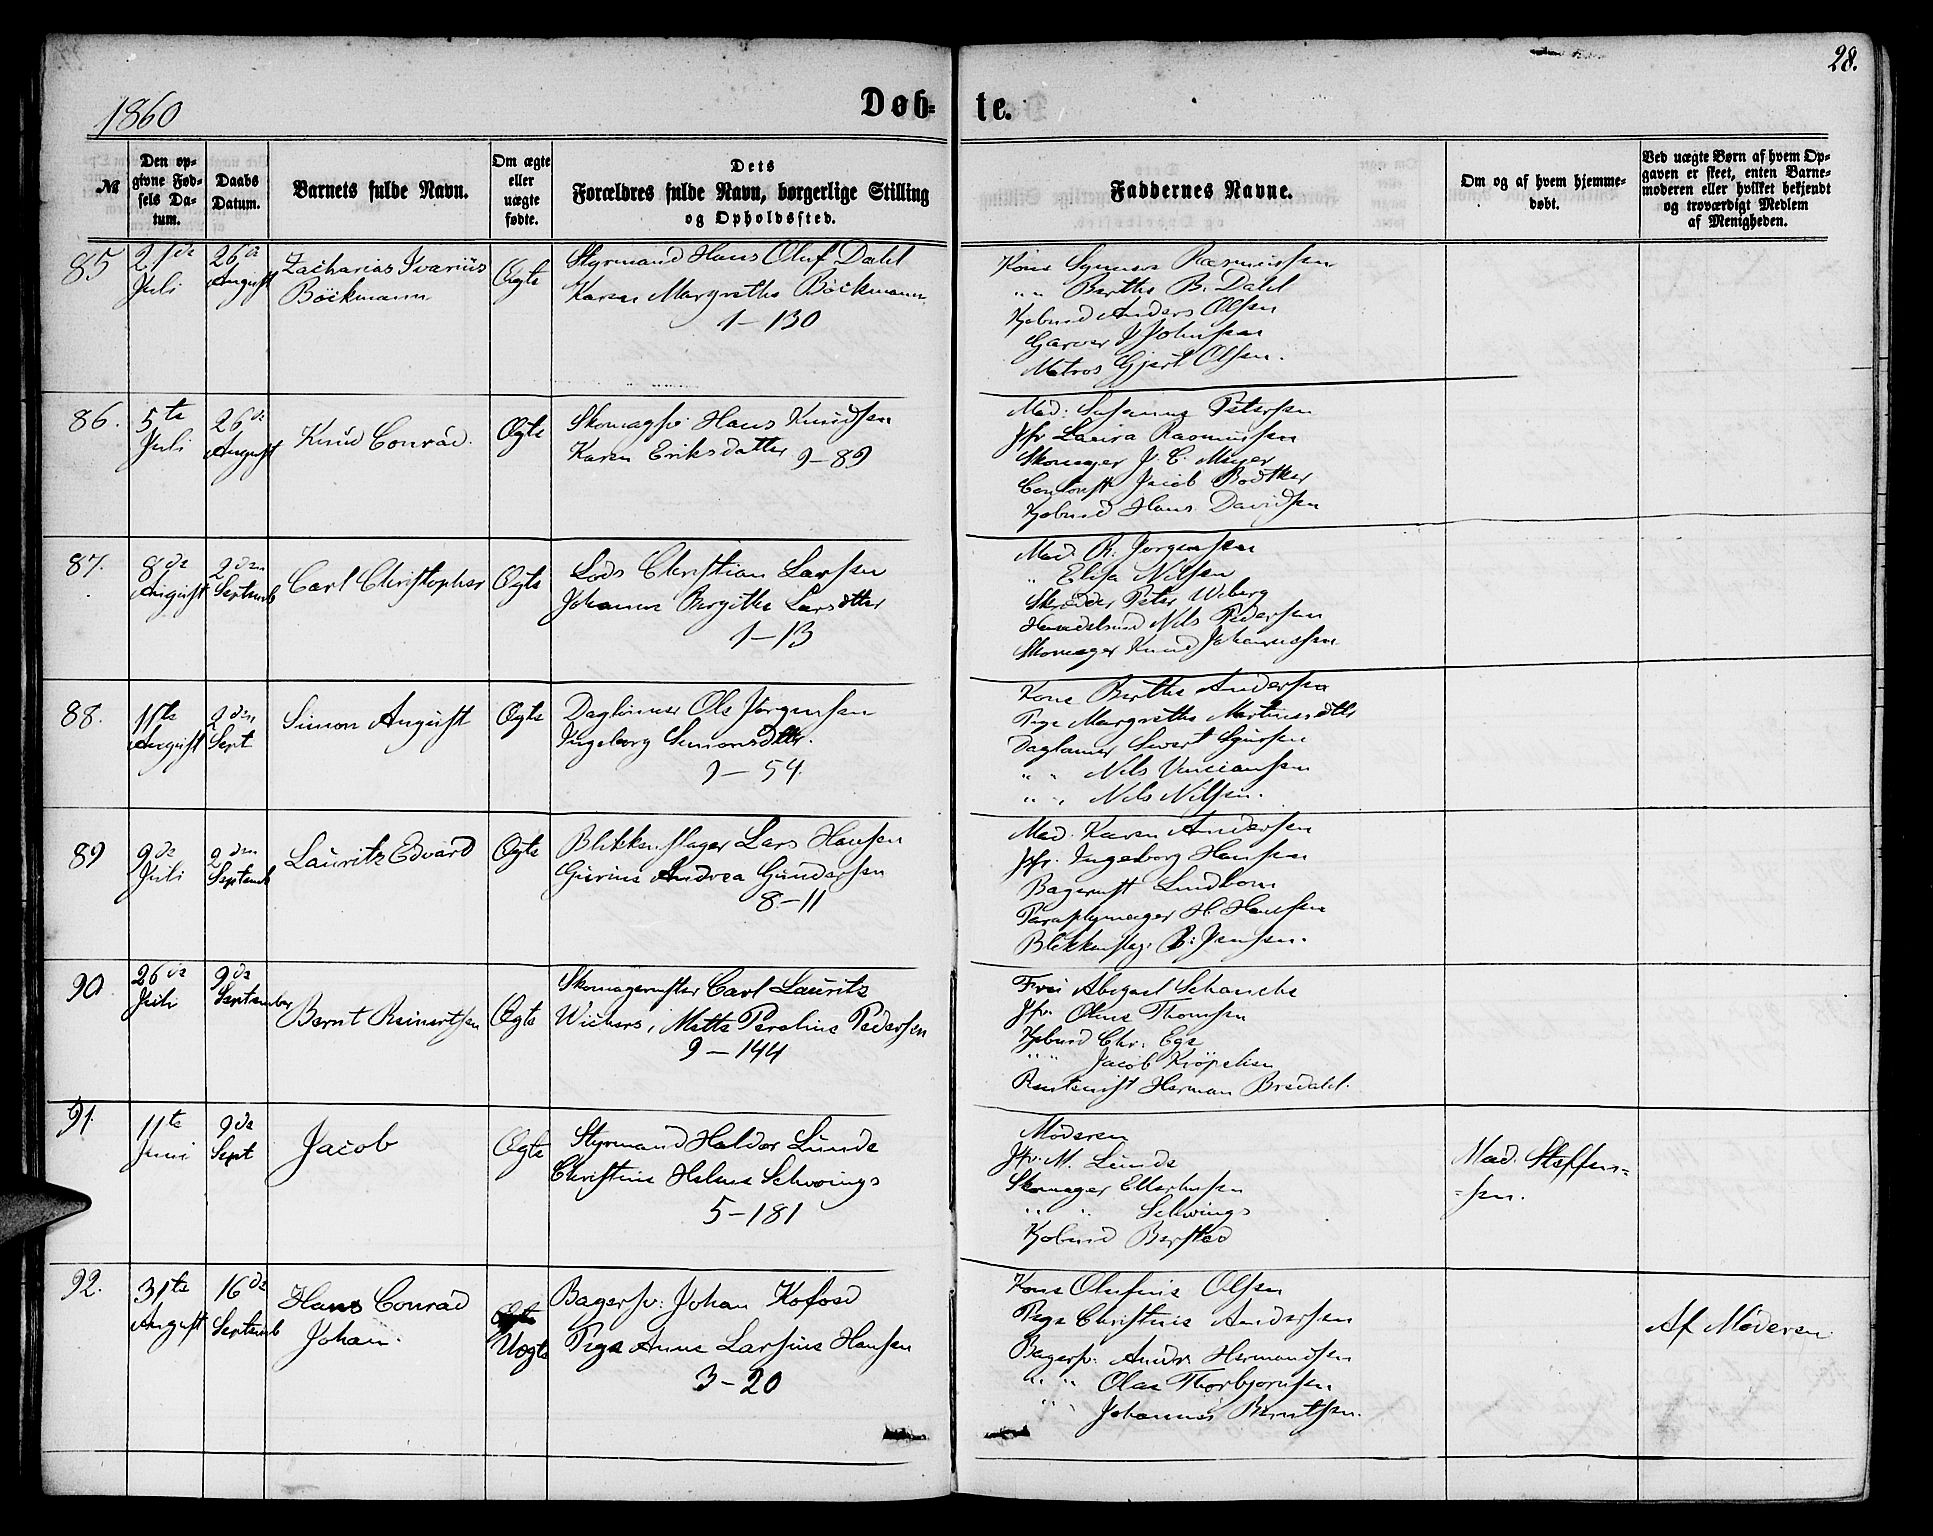 28.
1860
Døb-te.
№
Den opgivne Fødsels Datum.
Daabs Datum.
Barnets fulde Navn.
Om ægte eller uægte fødte.
Dets Forældres fulde Navn, borgerlige Stilling og Opholdssted.
Faddernes Navne.
Om og af hvem hjemmedøbt.
Ved uægte Børn af hvem Opgaven er skeet, enten Barnemoderen eller hvilket bekjendt og troværdigt Medlem af Menigheden.
85 21de Juli 26de August Zacharias Ivarius Böckmann Ægte
Styrmand Hans Oluf Dahl
Karen Margrethe Böckmann
1-130
Kone Rasmussen
" " Berthe B. Dahl
Kjøbmd Anders Olsen
Garver J Johnsen
Matros Gjert Olsen.
86. 5te Juli 26de August Knud Conrad. Ægte
Skomagsv Hans Knudsen
Karen Eriksdatter 9-89
Mad: Susanne Petersen
Jfr Laura Rasmussen
Skomager J. C. Meyer
Jacob Bødtker
Kjøbmd Hans Davidsen
87. 8de August 2den Septemb Carl Christopher Ægte
Lods Christian Larsen
Johanne Birgithe Larsdtter
1-13
Mad. R. Jørgensen
" Elisa Nilsen
Skræder Peter Wiberg
Handelsmd Nils Pedersen
Skomager Knud Johannessen
88. 11te August 2den Sept Simon August Ægte
Daglönner Ole Jörgensen
Ingeborg Simonsdtter.
9-54.
Kone Berthe Andersen
Pige Margrethe Martinesdtter
Daglønner Sivert Sjursen
" " Nils Vinciansen
" " Nils Nilsen.
89 9de Juli 2den Septemb Lauritz Edvard Ægte
Blikkenslager Lars Hansen
Gurine Andrea Gundersen
8-11
Mad. Karen Andersen
Jfr. Ingeborg Hansen
Bagermst Lindbom
Paraplymager H. Hansen
Blikkenslag. B: Jensen.
90 26de Juli 9de September Bernt Reinertsen Ægte
Skomagermster Carl Lauritz
Wichers, Mette Peroline Pedersen
9-144
Fru Abigael Schanche
Jfr. Oline Thomsen
Kjøbmd Chr. Ege
" " Jacob Kröpelien
Rentenist Herman Bredahl.
91. 11te Juni 9de Sept Jacob Ægte
Styrmand Haldor Lunde
Christine Helene Schwings
5-181
Moderen
Jfr. M. Lunde
Skomager Ellerhusen
" " Schwings
Kjobmd Berstad
Mad. Steffen=
=sen.
92. 31te August 16de Septemb Hans Conrad Johan. Uægte
Bagersv: Johan Kofoed
Pige Anne Larsine Hansen
3-20
Kone Olufine Olsen
Pige Christine Andersen
Bagersv: Andr. Hermandsen
" " Olai Thorbjornsen
" " Johannes Berntsen.
Af Moderen